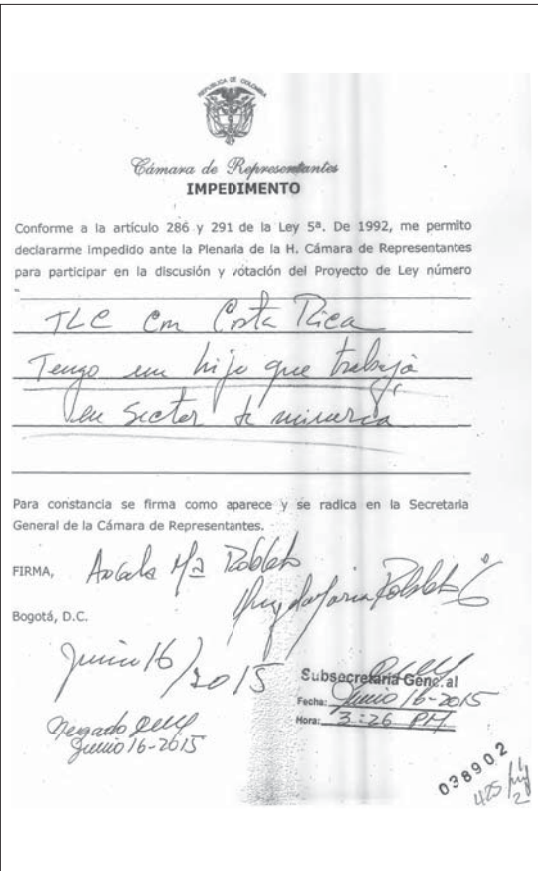 REPUBLICA DE COLOMBIA
Cámara de Representantes
IMPEDIMENTO
Conforme a la artículo 286 y 291 de la Ley 5ª. De 1992, me permito
declararme impedido ante la Plenaria de la H. Cámara de Representantes
para participar en la discusión y votación del Proyecto de Ley número
TLC con Costa Rica
Tengo un hijo que trabaja
en sector de minería
Para constancia se firma como aparece y se radica en la Secretaria
General de la Cámara de Representantes.
FIRMA, Angela Mª Robledo
Angela María Robledo G
Bogotá, D.C.
Junio 16/2015
Subsecretaría General
Fecha: Junio 16-2015
Hora: 3:26 PM
Negado
Junio 16-2015
038902
425
2